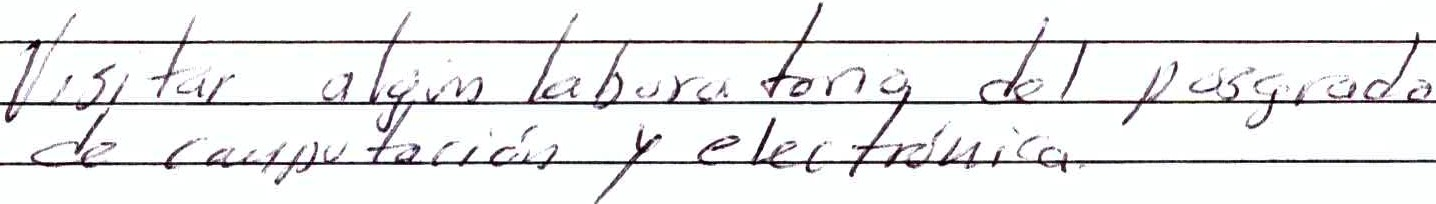 Visitar algún laboratorio del posgrado
de computación y electrónica.